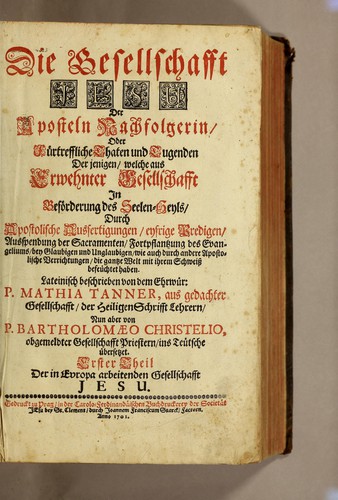 Die Gesellschafft
JESU
Der
Aposteln Nachfolgerin/
Oder
Fürtreffliche Thaten und Tugenden
Der jenigen/ welche aus
Erwehnter Gesellschafft
In
Beförderung des Seelen-Heyls/
Durch
Apostolische Ausfertigungen/ eyfrige Predigen/
Ausspendung der Sacramenten/ Fortpflantzung des Evan-
geliums/ bey Glaubigen und Unglaubigen/ wie auch durch andere Aposto-
lische Verrichtungen/ die gantze Welt mit ihrem Schweiß
befeuchtet haben.
Lateinisch beschrieben von dem Ehrwür:
P. MATHIA TANNER, aus gedachter
Gesellschafft/ der Heiligen Schrifft Lehrern/
Nun aber von
P. BARTHOLOMÆO CHRISTELIO,
obgemeldter Gesellschafft Priestern/ ins Teütsche
übersetzet.
Erster Theil
Der in Evropa arbeitenden Gesellschafft
JESU.
Gedruckt zu Prag/ in der Carolo-Ferdinandäischen Buchdruckerey der Societät
JEsu bey St. Clement/ durch Joannem Franciscum Factoren.
Anno 1701.